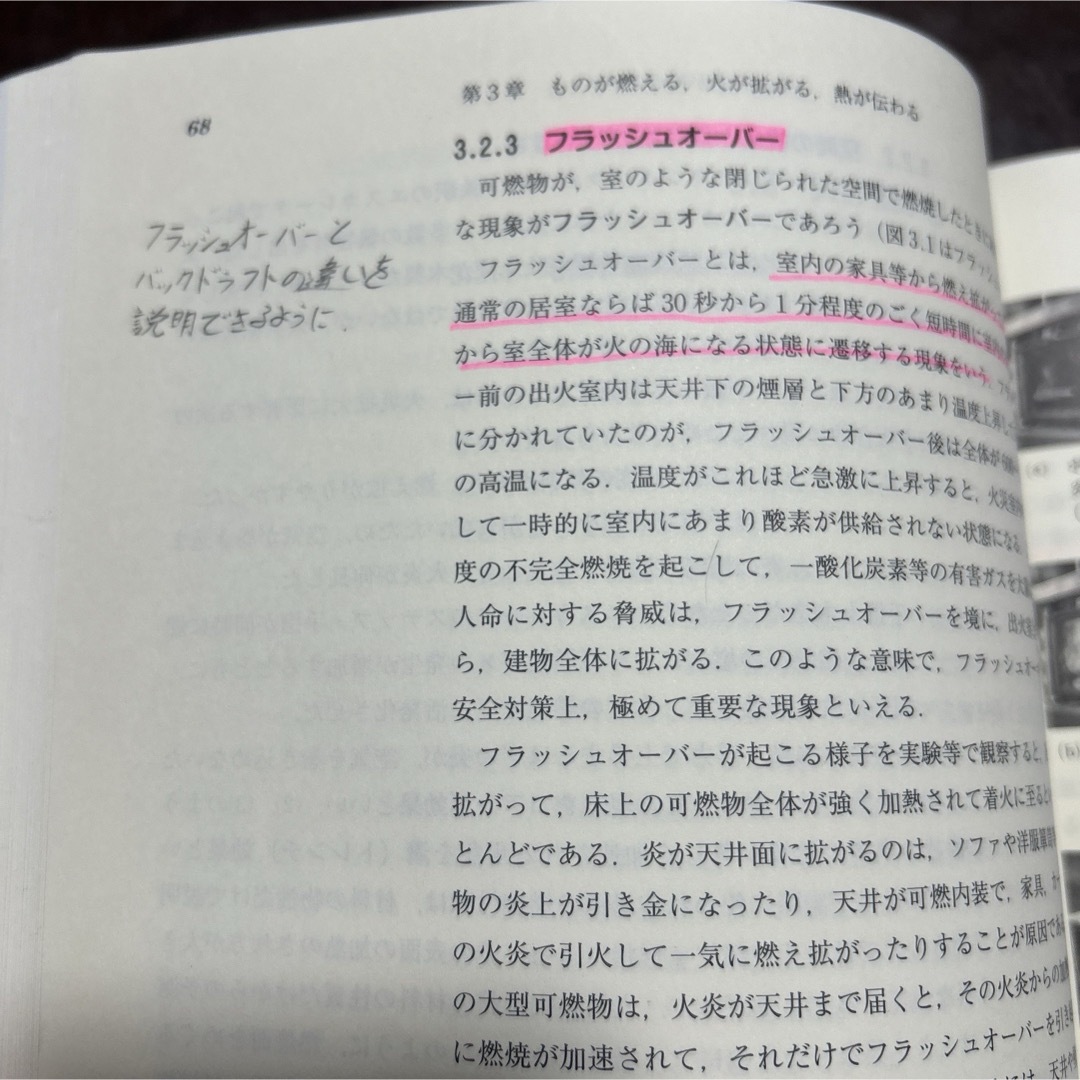 68
第3章 ものが燃える，火が拡がる，熱が伝わる
フラッシュオーバーと
バックドラフトの違いを
説明できるように．
3.2.3 フラッシュオーバー
可燃物が，室のような閉じられた空間で燃焼したとき
な現象がフラッシュオーバーであろう（図3.1はフラッシ
フラッシュオーバーとは，室内の家具等から燃え拡が
通常の居室ならば30秒から1分程度のごく短時間に
から室全体が火の海になる状態に遷移する現象をいう．
ー前の出火室内は天井下の煙層と下方のあまり温度上昇し
に分かれていたのが，フラッシュオーバー後は全体が
の高温になる．温度がこれほど急激に上昇すると，火災
して一時的に室内にあまり酸素が供給されない状態になる
度の不完全燃焼を起こして，一酸化炭素等の有害ガスを
人命に対する脅威は，フラッシュオーバーを境に，出火
ら，建物全体に拡がる．このような意味で，フラッシュオー
安全対策上，極めて重要な現象といえる．
フラッシュオーバーが起こる様子を実験等で観察すると，
拡がって，床上の可燃物全体が強く加熱されて着火に至ると
とんどである．炎が天井面に拡がるのは，ソファや洋服
物の炎上が引き金になったり，天井が可燃内装で，家具，
の火炎で引火して一気に燃え拡がったりすることが原因であ
の大型可燃物は，火炎が天井まで届くと，その火炎からの
に燃焼が加速されて，それだけでフラッシュオーバーを引き
(a)
(b)